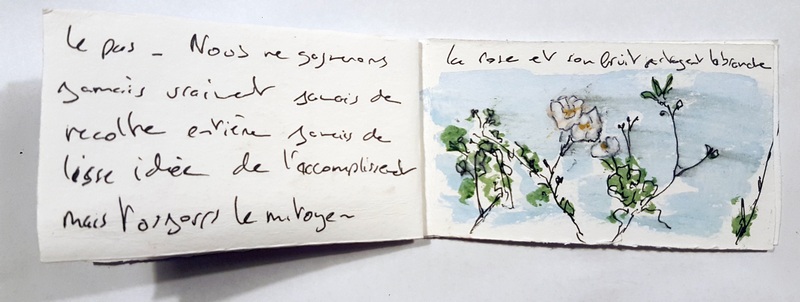 le pas - Nous ne gagnerons
jamais vraiment jamais de
recolte entière jamais de
lisse idée de l'accomplissement
mais toujours le mitoyen
la rose et son fruit partagent la branche